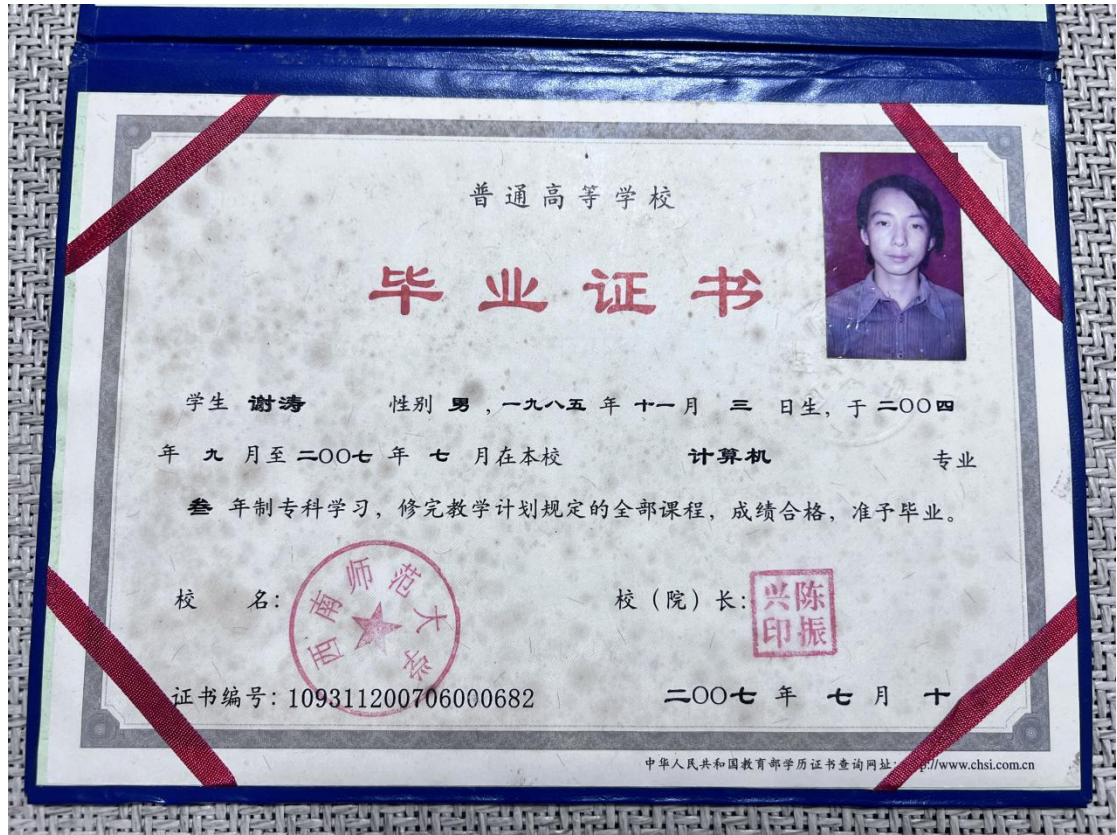 普通高等学校
毕业证书
学生 谢涛 性别 男 , 一九八五 年 十一月 三 日生, 于 二〇〇四
年 九 月至 二〇〇七 年 七 月在本校 计算机 专业
叁 年制专科学习, 修完教学计划规定的全部课程, 成绩合格, 准予毕业。
校 名: 西南师范大学
校（院）长: 陈振兴印
证书编号: 109311200706000682 二〇〇七 年 七 月 十
中华人民共和国教育部学历证书查询网址: ://www.chsi.com.cn